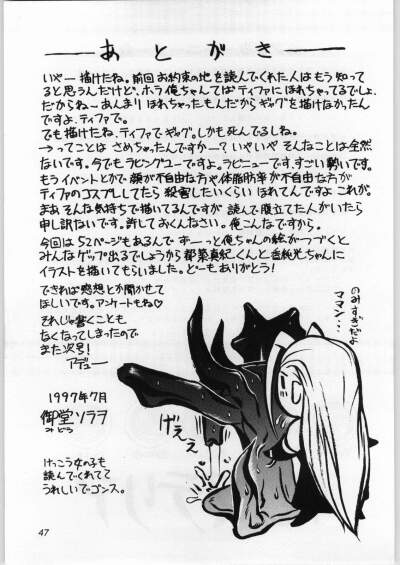 あとがき
いやー描けたね。前回お約束の地を読んでくれた人はもう知って
ると思うんだけど、ホラ俺ちゃんてばティファにほれちゃってるでしょ。
だからね〜あんまりほれちゃったもんだからギャグを描けなかったん
ですよ、ティファで。
でも描けたね、ティファでギャグ。しかも死んでるしね。
→ってことはさめちゃったんですかー？いやいやそんなことは全然
ないです。今でもラビングユーですよ。ラビニューです、すごい勢いです。
もうイベントとかで顔が不自由な方や体脂肪率が不自由な方が
ティファのコスプレしてたら殺害したいくらいほれてんですよこれが。
まあそんな気持ちで描いてるんですが読んで腹立てた人がいたら
申し訳ないです。許しておくんなさい。俺こんなですから。
今回は52ページもあるんでずーっと俺ちゃんの絵がつづくと
みんなゲップ出るでしょうから都築真紀くんと香純光ちゃんに
イラストを描いてもらいました。どーもありがとう！
できれば感想とか聞かせて
ほしいです。アンケートもね♡
それじゃ書くことも
なくなってしまったので
また次号！
アデュー
1997年7月
御堂ソラヲ
みどう
けっこう女の子も
読んでくれてて
うれしいでゴンス。
のみすぎだよ
ママン…
げええ
47